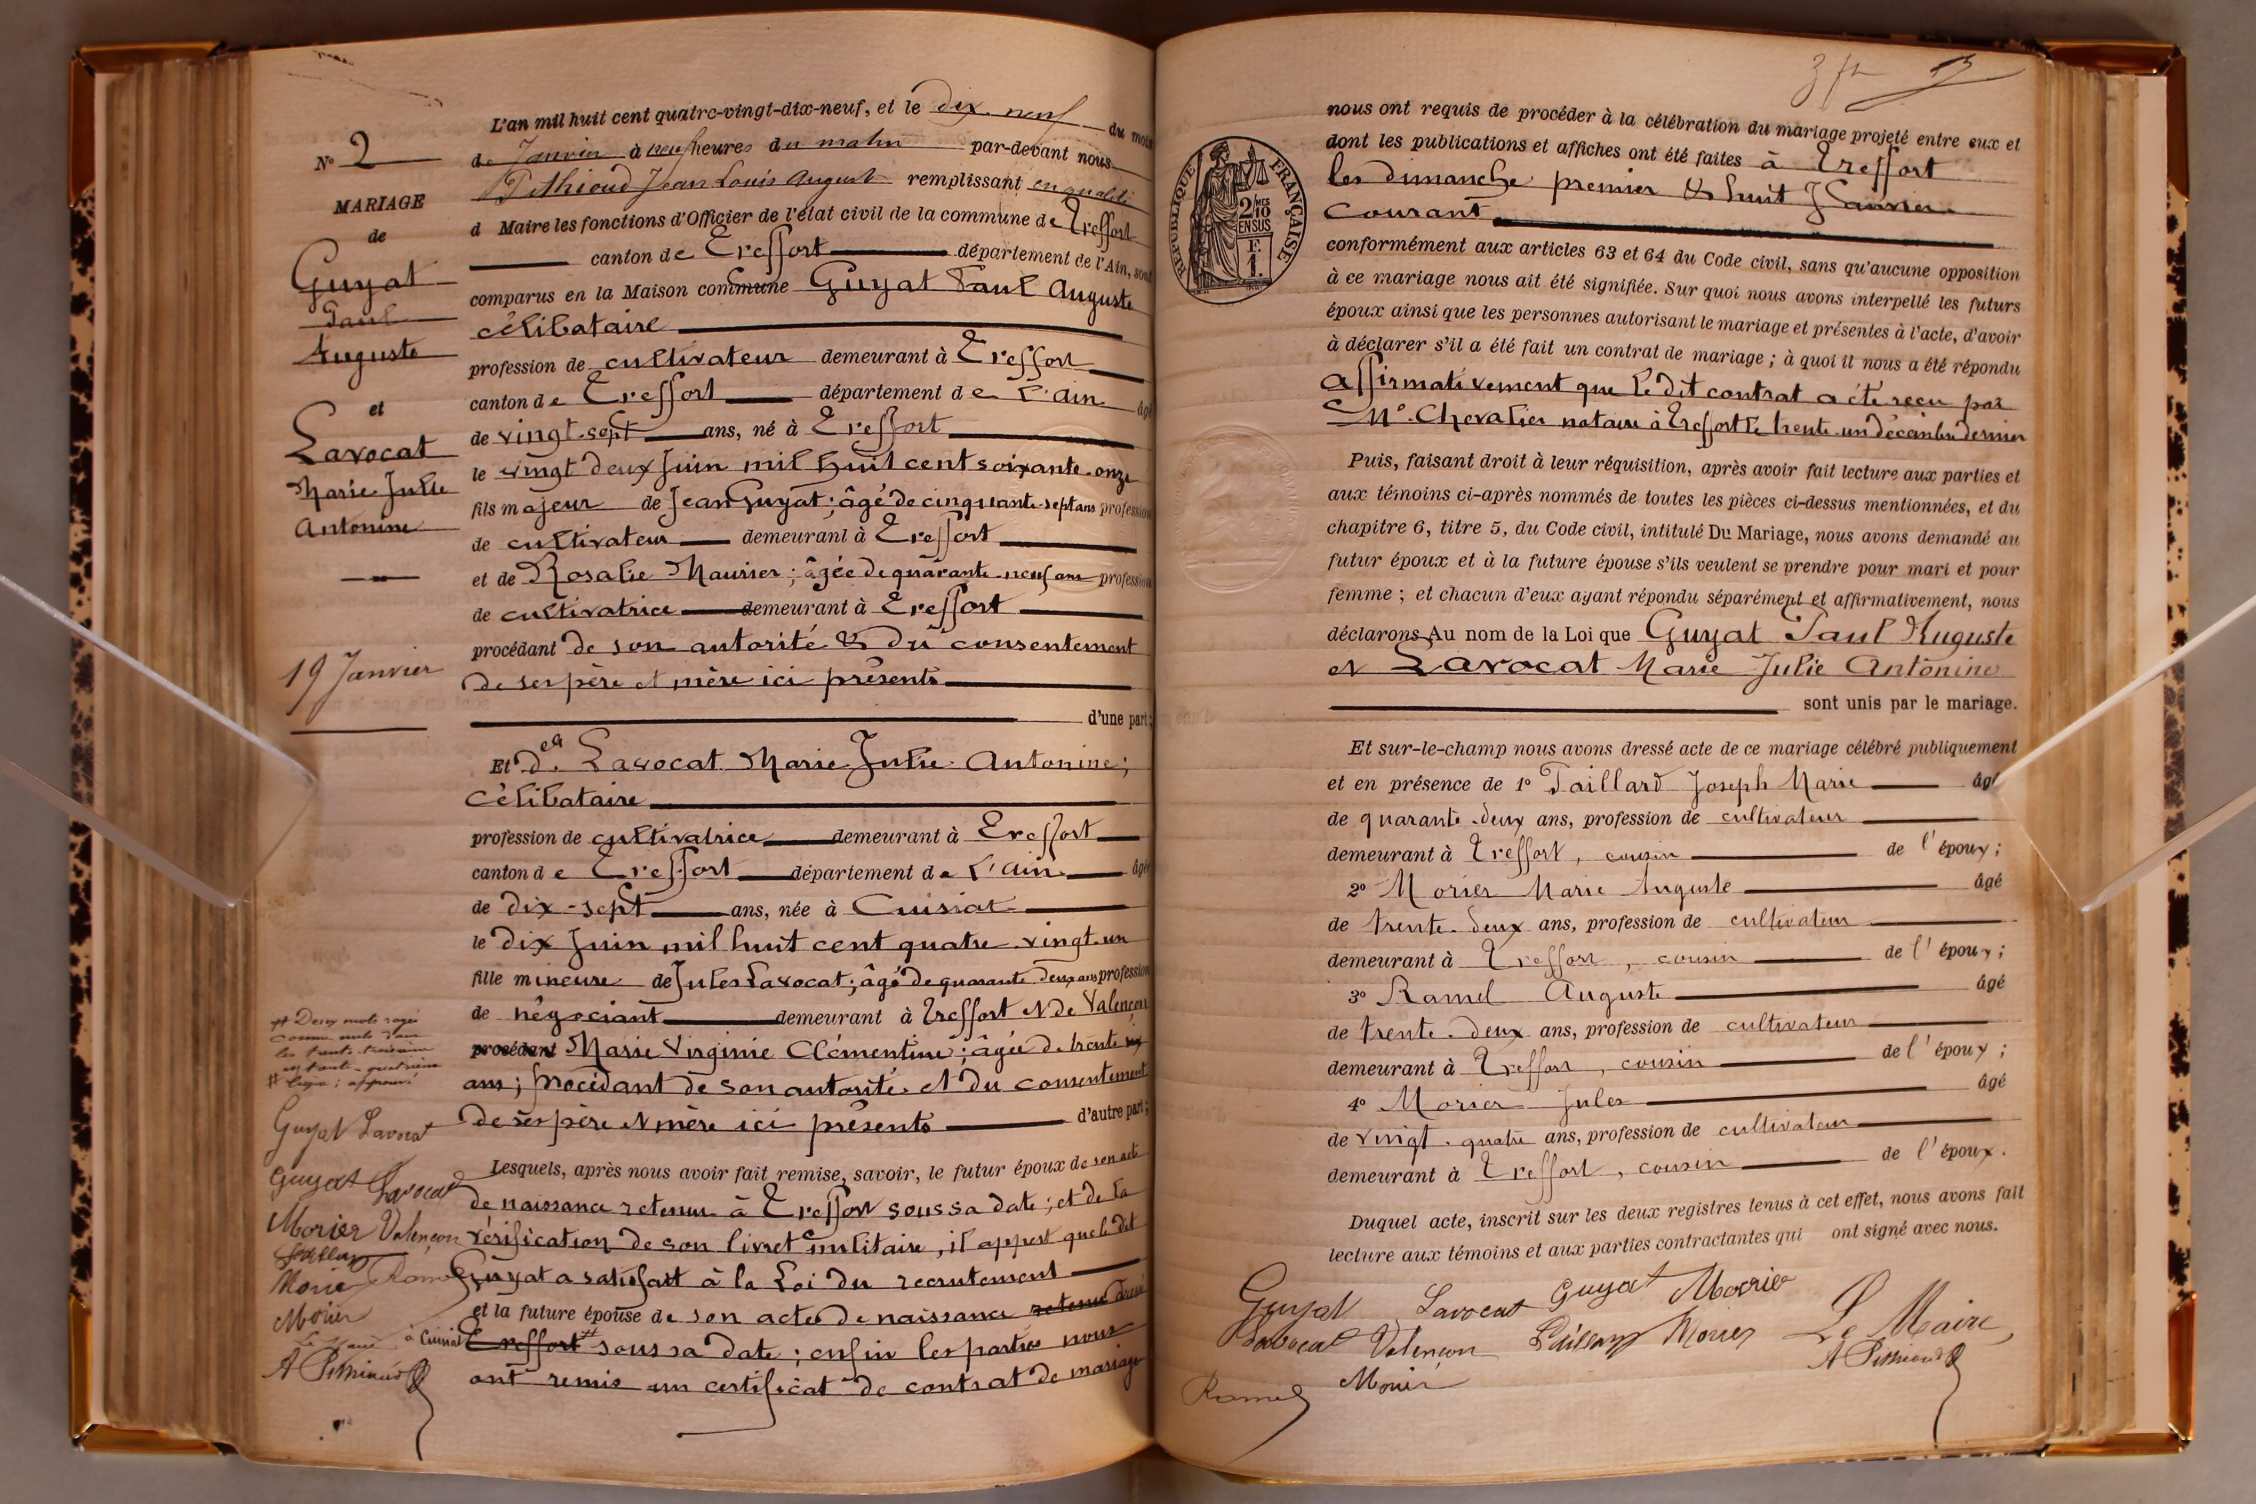 L'an mil huit cent quatre-vingt-dix-neuf, et le dix neuf du mois
de Janvier à neuf heures du matin par-devant nous
Pithioud Jean Louis Auguste remplissant en qualité
d Maire les fonctions d'Officier de l'état civil de la commune de Treffort
canton de Treffort département de l'Ain, sont
comparus en la Maison commune Guyat Paul Auguste
célibataire
profession de cultivateur demeurant à Treffort
canton de Treffort département de L'Ain âgé
de vingt-sept ans, né à Treffort
le vingt deux Juin mil huit cent soixante-onze
fils majeur de Jean Guyat; âgé de cinquante-sept ans profession
de cultivateur demeurant à Treffort
et de Rosalie Maurier; âgée de quarante-neuf ans profession
de cultivatrice demeurant à Treffort
procédant de son autorité & du consentement
de ses père et mère ici présents
d'une part;
Et d elle Lavocat Marie Julie Antonine;
célibataire
profession de cultivatrice demeurant à Treffort
canton de Treffort département de L'Ain âgée
de dix-sept ans, née à Cuisiat
le dix Juin mil huit cent quatre-vingt-un
fille mineure de Jules Lavocat; âgé de quarante deux ans profession
de négociant demeurant à Treffort et de Valençon
procédant Marie Virginie Clémentine; âgée de trente
ans; procédant de son autorité et du consentement
de ses père et mère ici présents d'autre part;
Lesquels, après nous avoir fait remise, savoir, le futur époux de son acte
de naissance retenu à Treffort sous sa date; et de la
vérification de son livret militaire, il appert que le dit
Guyat a satisfait à la Loi du recrutement
et la future épouse de son acte de naissance retenu
à Cuisiat Treffort # sous sa date; enfin les parties nous
ont remis un certificat de contrat de mariage
No 2
MARIAGE
de
Guyat
Paul
Auguste
et
Lavocat
Marie Julie
Antonine
19 Janvier
# Deux mots rayés
comme nuls dans
# ligne; approuvé
Guyat Lavocat
Guyat Lavocat
Morier Valençon
Paillard
Morier Ramel
Morier
Le Maire
A Pithioud
3 fr 13
RÉPUBLIQUE FRANÇAISE
2/10 EN SUS
F. 1.
nous ont requis de procéder à la célébration du mariage projeté entre eux et
dont les publications et affiches ont été faites à Treffort
les dimanche premier & huit Janvier
courant
conformément aux articles 63 et 64 du Code civil, sans qu'aucune opposition
à ce mariage nous ait été signifiée. Sur quoi nous avons interpellé les futurs
époux ainsi que les personnes autorisant le mariage et présentes à l'acte, d'avoir
à déclarer s'il a été fait un contrat de mariage; à quoi il nous a été répondu
affirmativement que le dit contrat a été reçu par
Me. Chevalier notaire à Treffort le trente-un décembre dernier
Puis, faisant droit à leur réquisition, après avoir fait lecture aux parties et
aux témoins ci-après nommés de toutes les pièces ci-dessus mentionnées, et du
chapitre 6, titre 5, du Code civil, intitulé Du Mariage, nous avons demandé au
futur époux et à la future épouse s'ils veulent se prendre pour mari et pour
femme; et chacun d'eux ayant répondu séparément et affirmativement, nous
déclarons Au nom de la Loi que Guyat Paul Auguste
et Lavocat Marie Julie Antonine
sont unis par le mariage.
Et sur-le-champ nous avons dressé acte de ce mariage célébré publiquement
et en présence de 1º Paillard Joseph Marie âgé
de quarante-deux ans, profession de cultivateur
demeurant à Treffort, cousin de l'époux;
2º Morier Marie Auguste âgé
de trente-deux ans, profession de cultivateur
demeurant à Treffort, cousin de l'époux;
3º Ramel Auguste âgé
de trente-deux ans, profession de cultivateur
demeurant à Treffort, cousin de l'époux;
4º Morier Jules âgé
de vingt-quatre ans, profession de cultivateur
demeurant à Treffort, cousin de l'époux.
Duquel acte, inscrit sur les deux registres tenus à cet effet, nous avons fait
lecture aux témoins et aux parties contractantes qui ont signé avec nous.
Guyat Lavocat Guyat Morier
Lavocat Valençon Paillard Morier Le Maire,
Morier A Pithioud
Ramel